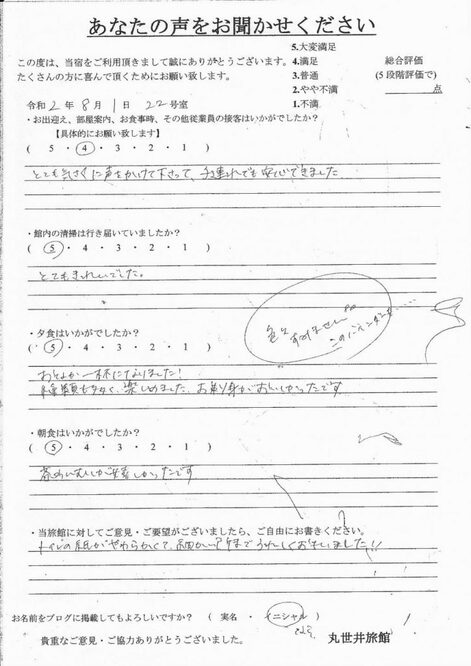 あなたの声をお聞かせください
この度は、当宿をご利用頂きまして誠にありがとうございます。
たくさんの方に喜んで頂くためにお願い致します。
5.大変満足
4.満足
3.普通
2.やや不満
1.不満
総合評価
(5段階評価で)
点
令和 2 年 8 月 1 日 22号室
・お出迎え、部屋案内、お食事時、その他従業員の接客はいかがでしたか?
【具体的にお願い致します】
( 5 ・ 4 ・ 3 ・ 2 ・ 1 )
とても気さくに声をかけて下さって、子連れでも安心できました
・館内の清掃は行き届いていましたか?
( 5 ・ 4 ・ 3 ・ 2 ・ 1 )
とてもきれいでした。
色々
すみません
この
・夕食はいかがでしたか?
( 5 ・ 4 ・ 3 ・ 2 ・ 1 )
一杯になりました!
種類も多く、楽しめました、お刺身がおいしかったです
・朝食はいかがでしたか?
( 5 ・ 4 ・ 3 ・ 2 ・ 1 )
茶わんむしが美味しかったです
・当旅館に対してご意見・ご要望がございましたら、ご自由にお書きください。
トイレの紙がやわらかくて、細かい所までうれしく思いました!!
お名前をブログに掲載してもよろしいですか? ( 実名 ・ イニシャル )
貴重なご意見・ご協力ありがとうございました。
丸世井旅館